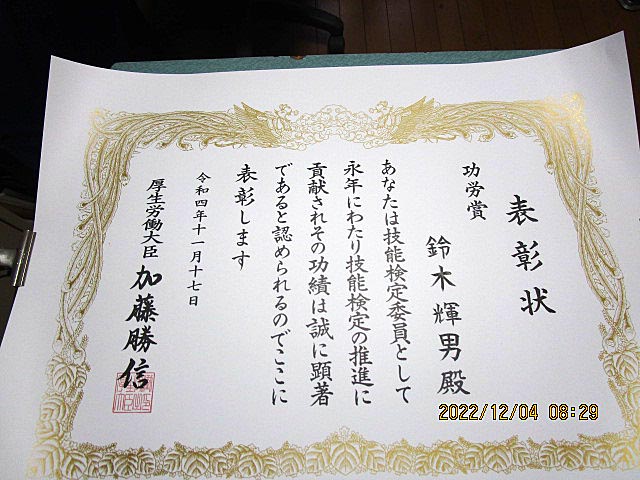 表彰状
功労賞
鈴木輝男殿
あなたは技能検定委員として
永年にわたり技能検定の推進に
貢献されその功績は誠に顕著
であると認められるのでここに
表彰します
令和四年十一月十七日
厚生労働大臣 加藤勝信
2022/12/04 08:29